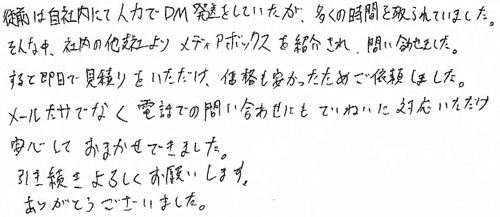 従前は自社内にて人力でDM発送をしていたが、多くの時間を取られていました。
そんな中、社内の他部署より メディアボックスを紹介され、問い合わせました。
すると即日で見積りをいただけ、価格も安かったためご依頼しました。
メールだけでなく 電話での問い合わせにも ていねいに対応いただけ
安心して おまかせできました。
引き続きよろしくお願いします。
ありがとうございました。